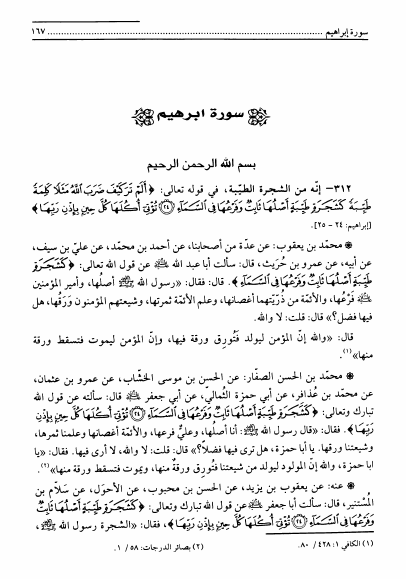 سورة إبراهيم ........................................................................ ١٦٧
سورة ابرهيم
بسم الله الرحمن الرحيم
٣١٢- إنّه من الشجرة الطيّبة، في قوله تعالى: ﴿أَلَمْ تَرَ كَيْفَ ضَرَبَ اللَّهُ مَثَلًا كَلِمَةً
طَيِّبَةً كَشَجَرَةٍ طَيِّبَةٍ أَصْلُهَا ثَابِتٌ وَفَرْعُهَا فِي السَّمَاءِ (٢٤) تُؤْتِي أُكُلَهَا كُلَّ حِينٍ بِإِذْنِ رَبِّهَا﴾
[إبراهيم: ٢٤ - ٢٥].
* محمّد بن يعقوب: عن عدّة من أصحابنا، عن أحمد بن محمّد، عن عليّ بن سيف،
عن أبيه، عن عمرو بن حُرَيث، قال: سألت أبا عبد الله ﷺ عن قول الله تعالى: ﴿كَشَجَرَةٍ
طَيِّبَةٍ أَصْلُهَا ثَابِتٌ وَفَرْعُهَا فِي السَّمَاءِ﴾. قال: فقال: «رسول الله ﷺ أصلُها، وأمير المؤمنين
فَرْعُها، والأئمّة من ذُرّيّتهما أغصانها، وعلم الأئمّة ثمرتها، وشيعتهم المؤمنون وَرَقُها، هل
فيها فضل؟» قال: قلت: لا والله.
قال: «والله إنّ المؤمن ليولد فتُورق ورقة فيها، وإنّ المؤمن ليموت فتسقط ورقة
منها»(١).
* محمّد بن الحسن الصفّار: عن الحسن بن موسى الخشّاب، عن عمرو بن عثمان،
عن محمّد بن عُذافر، عن أبي حمزة الثمالي، عن أبي جعفر قال: سألته عن قول الله
تبارك وتعالى: ﴿كَشَجَرَةٍ طَيِّبَةٍ أَصْلُهَا ثَابِتٌ وَفَرْعُهَا فِي السَّمَاءِ (٢٤) تُؤْتِي أُكُلَهَا كُلَّ حِينٍ بِإِذْنِ
رَبِّهَا﴾. فقال: «قال رسول الله ﷺ: أنا أصلُها، وعليٌّ فرعها، والأئمّة أغصانها وعلمنا ثمرها،
وشيعتنا ورقها. يا أبا حمزة، هل ترى فيها فضلاً؟» قال: قلت: لا والله، لا أرى فيها. فقال: «يا
ابا حمزة، والله إنّ المولود ليولد من شيعتنا فتُورق ورقةٌ منها، ويموت فتسقط ورقة منها»(٢).
* عنه: عن يعقوب بن يزيد، عن الحسن بن محبوب، عن الأحول، عن سلّام بن
المُستنير، قال: سألت أبا جعفر عن قول الله تبارك وتعالى: ﴿كَشَجَرَةٍ طَيِّبَةٍ أَصْلُهَا ثَابِتٌ
وَفَرْعُهَا فِي السَّمَاءِ (٢٤) تُؤْتِي أُكُلَهَا كُلَّ حِينٍ بِإِذْنِ رَبِّهَا﴾، فقال: «الشجرة رسول الله ﷺ،
(١) الكافي ١: ٤٢٨ / ٨٠. (٢) بصائر الدرجات: ٥٨ / ١.